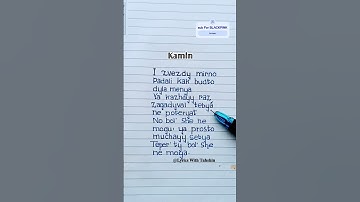 sub For BLACKPINK
Kamin
I zvezdy mirno
Padali kak budto
dlya menya
Ya kazhdly raz
Zagadyval tebya
ne poteryat
No bol' she ne
mogu ya prosto
muchayu sebya
Teper' ty bol' she
ne moya
@Lyrics With Tabahin